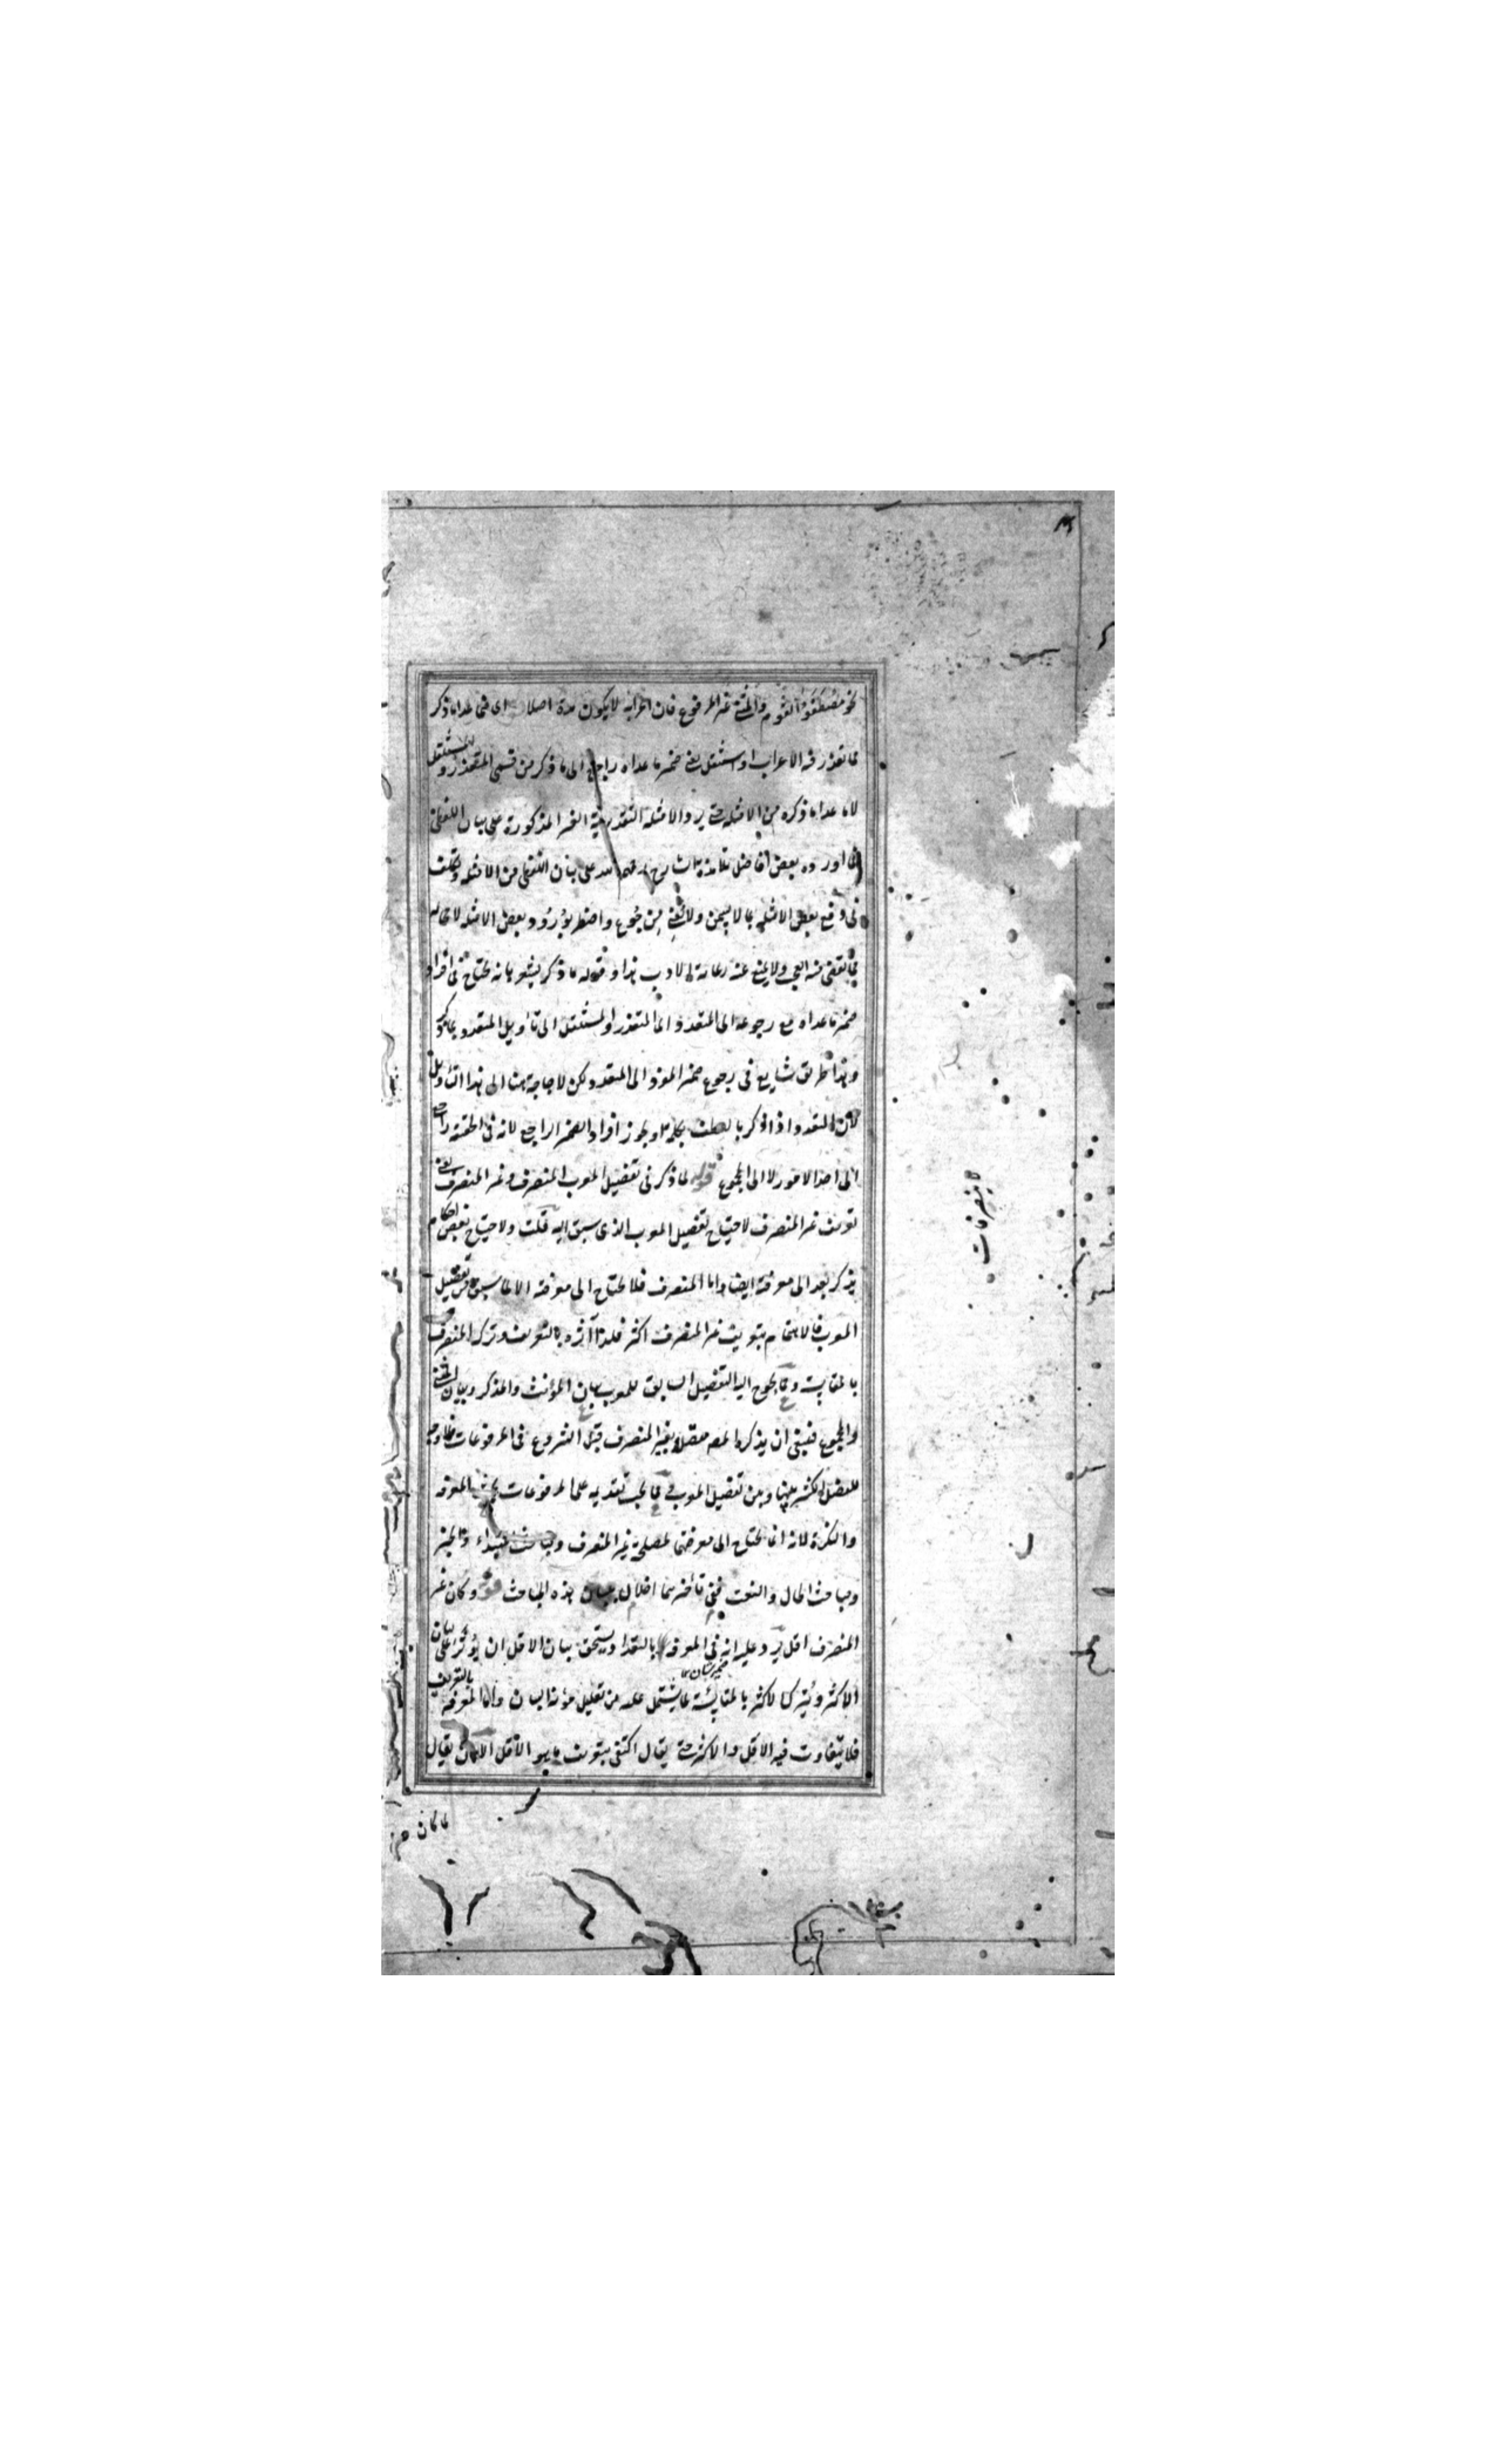 نحو مصطفو القوم والمثنى غير المرفوع فان اعرابه لا يكون مدة اصلا اى فى ما عدا ما ذكر
مما تعذر فيه الاعراب او استثقل يعنى ضمير ما عداه راجع الى ما ذكر من قسمى المتعذر والمستثقل
لا ما عدا ما ذكره من الامثلة حتى يرد الامثلة التقديرية الغير المذكورة على بيان اللفظى
كما اورده بعض افاضل تلامذة الشارح على بيان اللفظى من الامثلة وتكلف
فى دفع بعض الامثلة بما لا يسمن ولا يغنى من جوع واضطر بورود بعض الامثلة
ولا يمنع عنه رعاية الادب هذا وقوله ما ذكر يشعر بانه يحتاج فى افراد
ضمير ما عداه مع رجوعه الى المتعدد اى المتعذر والمستثقل الى تأويل المتعدد بما ذكر
وهذا طريق شايع فى رجوع ضمير المفرد الى المتعدد لكن لا حاجة هنا الى هذا التأويل
لان المتعدد اذا ذكر بالعطف بكلمة او يجوز افراد الضمير الراجع لانه فى الحقيقة راجع
الى احد الامور لا الى المجموع قوله لما ذكر فى تفصيل المعرب المنصرف وغير المنصرف يعنى
تعريف غير المنصرف لاحتياج تفصيل المعرب الذى سبق اليه قلت ولاحتياج بعض احكام
يذكر بعد الى معرفته ايضا واما المنصرف فلا يحتاج الى معرفته الا لما سبق من تفصيل
المعرب فالاهتمام بتعريف غير المنصرف اكثر فلذا آثره بالتعريف وترك المنصرف
بالمقايسة ومما يحوج اليه التفصيل السابق للمعرب بيان المؤنث والمذكر وبيان المثنى
والمجموع فينبغى ان يذكر المص متصلا بغير المنصرف قبل الشروع فى المرفوعات
للفصل الكثير بينها وبين تفصيل المعرب ومما يجب تقديمه على المرفوعات بحث المعرفة
والنكرة لانه انما يحتاج الى معرفتهما لمصلحة غير المنصرف ومباحث المبتداء والخبر
ومباحث الحال والنعت ففى تأخيرهما اخلال ببيان هذه المباحث قوله وكان غير
المنصرف اقل يرد عليه انه فى المعرفة بالتعداد يستحق بيان الاقل ان يؤثر على بيان
الاكثر ويترك الاكثر بالمقايسة لما يشتمل عليه من تقليل مؤنة البيان واما المعرفة بالتعريف
فلا يتفاوت فيه الاقل والاكثر حتى يقال اكتفى بتعريف ما هو الاقل الا ان يقال
لما كان
لا ينصرفات